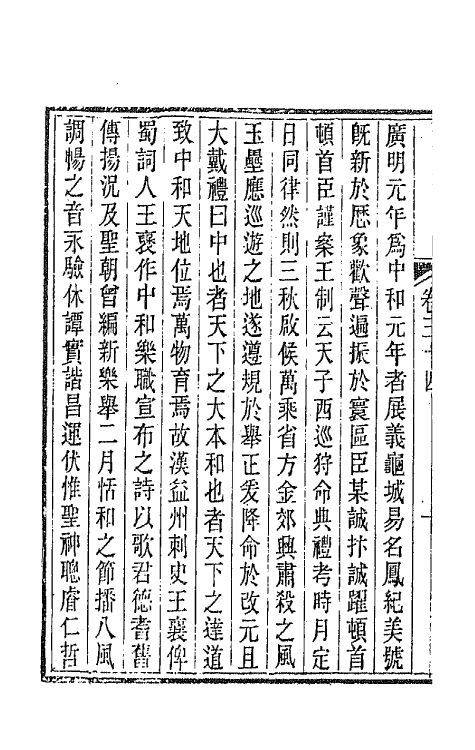 卷三十四
廣明元年爲中和元年者展義龜城易名鳳紀美號
旣新於厯象歡聲遍振於寰區臣某誠抃誠躍頓首
頓首臣謹案王制云天子西巡狩命典禮考時月定
日同律然則三秋啟候萬乘省方金郊興肅殺之風
玉壘應巡遊之地遂遵規於舉正爰降命於改元且
大戴禮曰中也者天下之大本和也者天下之達道
致中和天地位焉萬物育焉故漢益州刺史王襄俾
蜀詞人王褒作中和樂職宣布之詩以歌君德耆舊
傳揚況及聖朝曾編新樂舉二月恬和之節播八風
調暢之音永驗休譚實諧昌運伏惟聖神聰睿仁哲